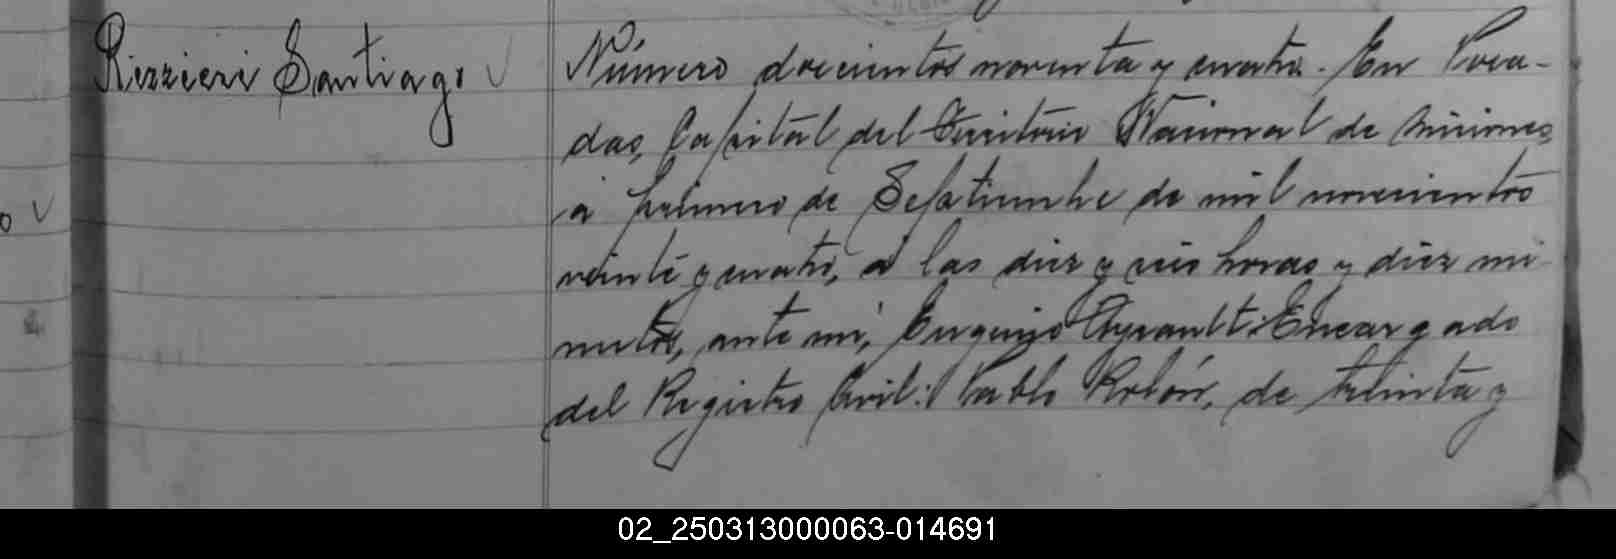 Rizzieri Santiago
Número doscientos noventa y cuatro. En Posa-
das, Capital del Territorio Nacional de Misiones,
a primero de Septiembre de mil novecientos
veinte y cuatro, a las diez y seis horas y diez mi
nutos, ante mí, Eugenio Ayrault: Encargado
del Registro Civil: Pablo Rolón, de treinta y
02_250313000063-014691